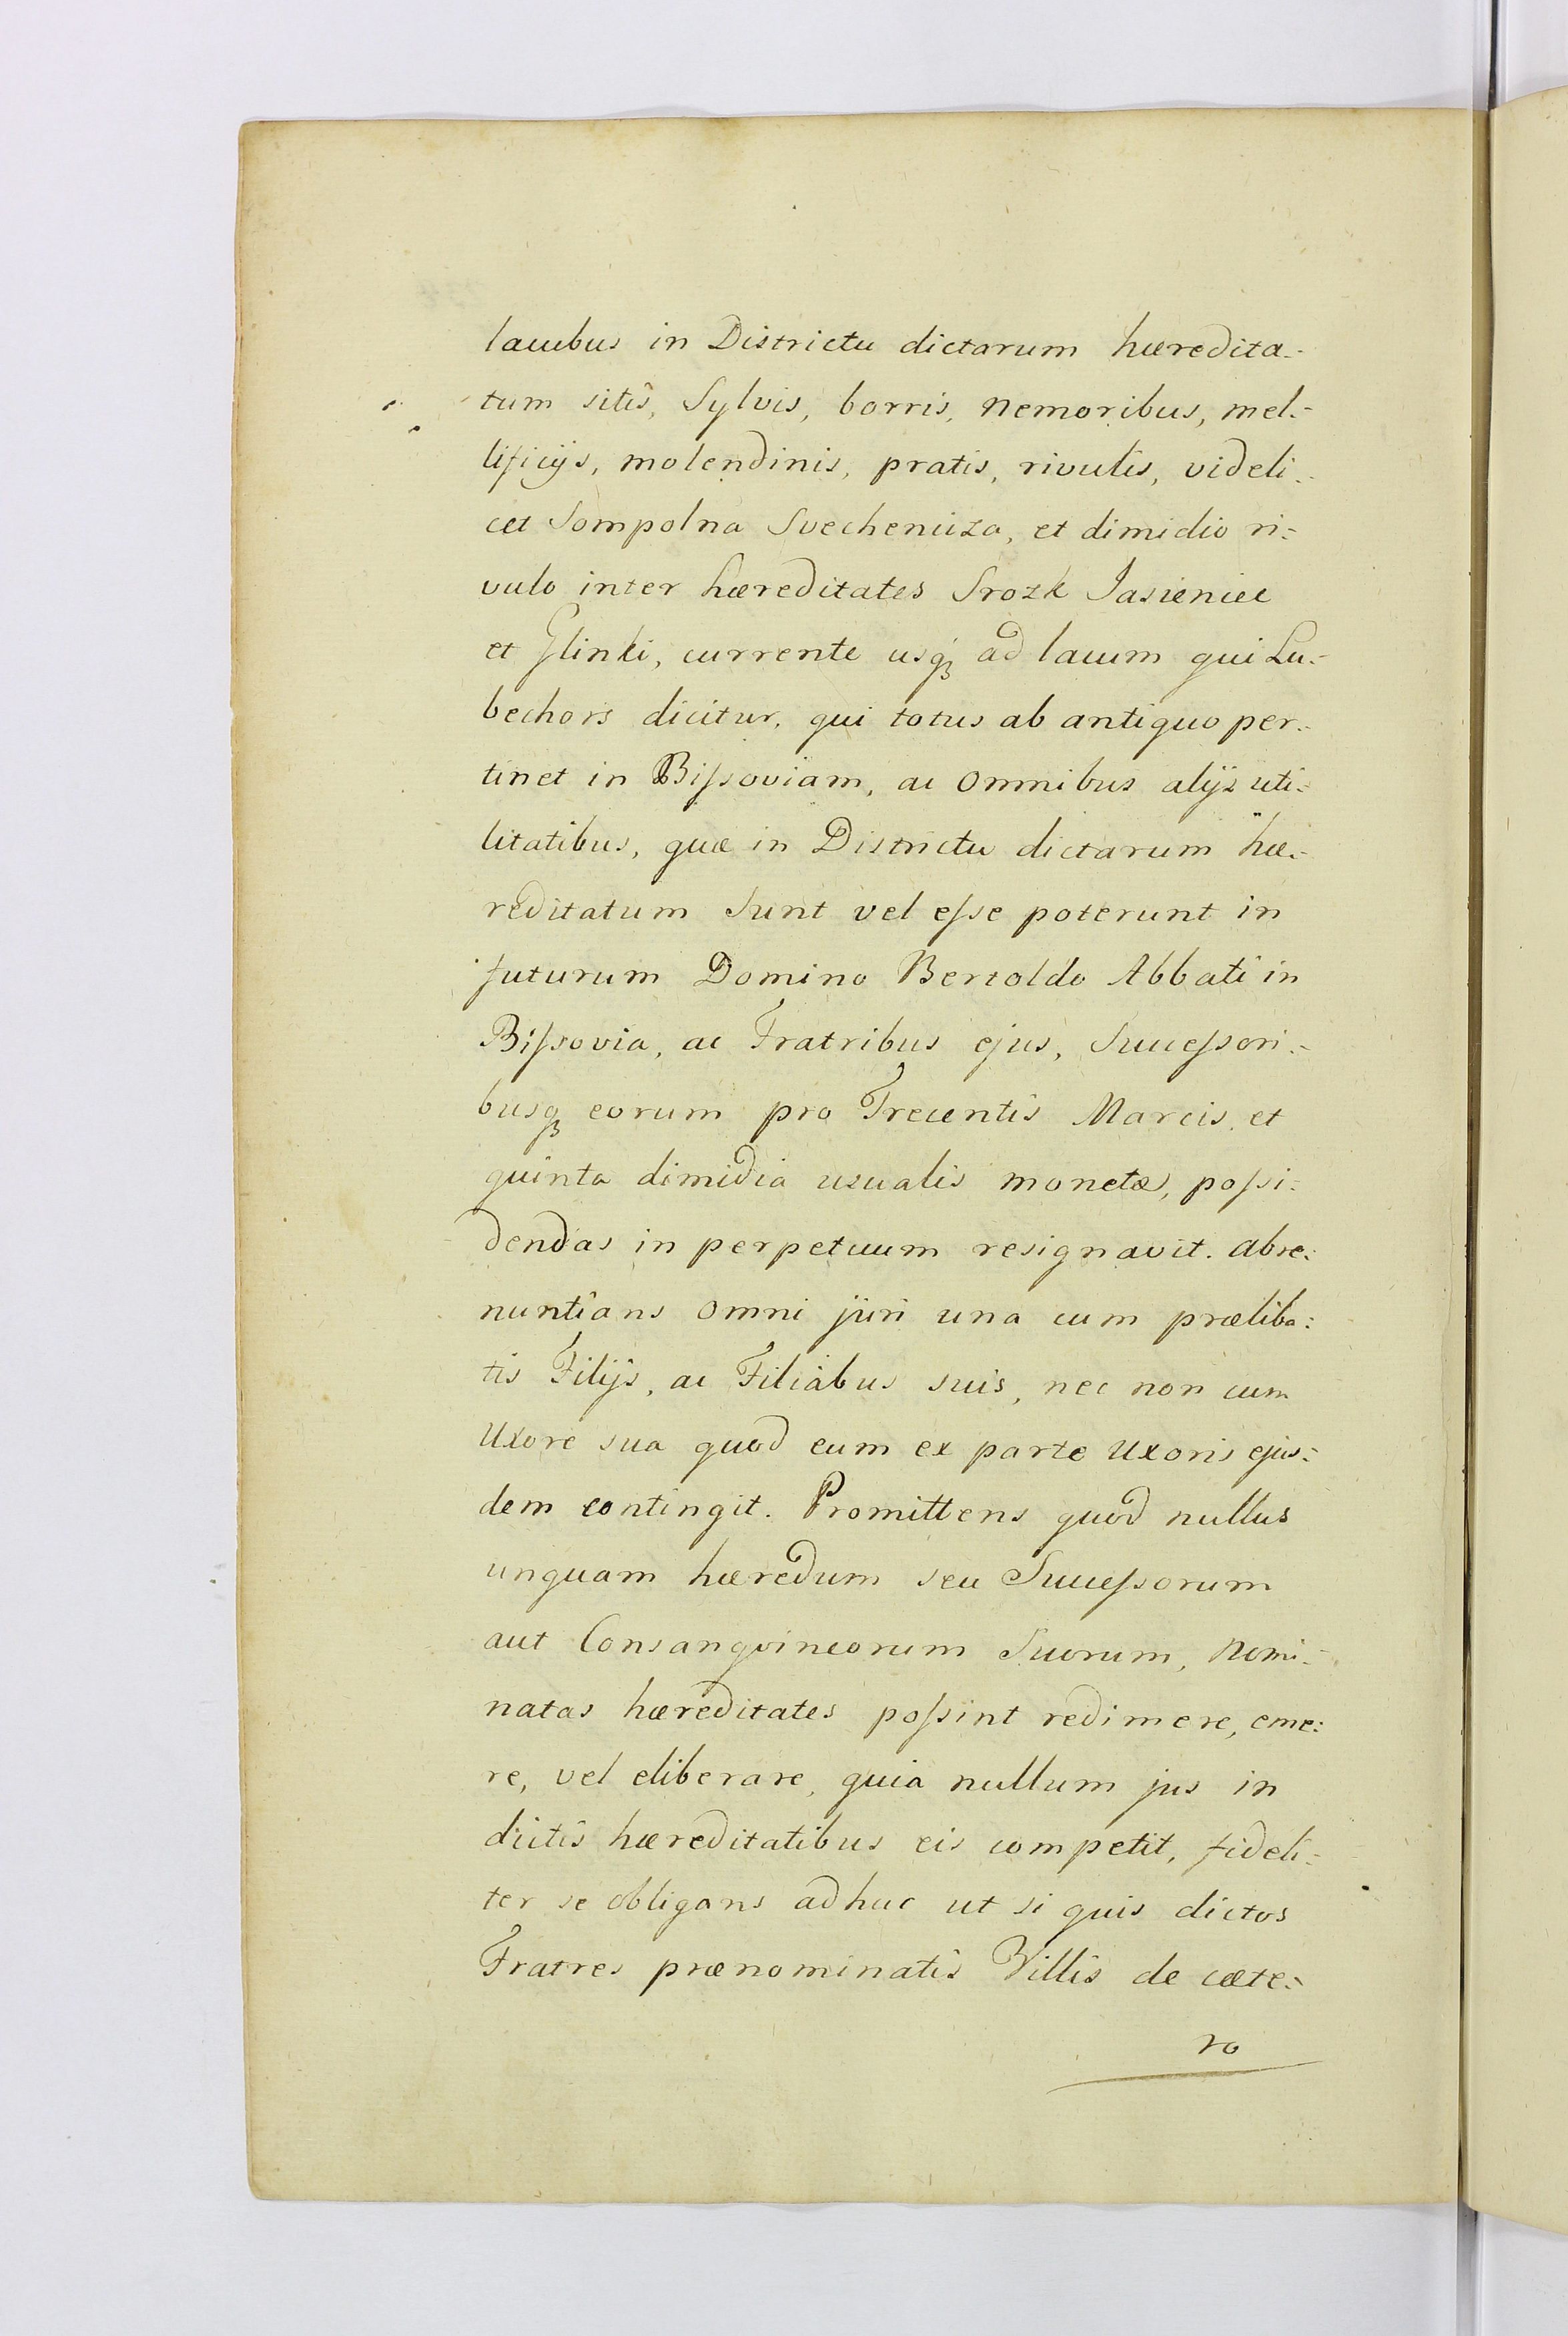 lacubus in Districtu dictarum hæredita-
tum sitis, Sylvis, borris, nemoribus, mel-
lificijs, molendinis, pratis, rivulis, videli-
cet Sompolna Svechenicza, et dimidio ri-
vulo inter hæreditates Srozk Jasieniec
et Glinki, currente usq; ad lacum qui Lu-
bechors dicitur, qui totus ab antiquo per-
tinet in Bissoviam, ac omnibus alijs uti-
litatibus, quæ in Districtu dictarum hæ-
reditatum sunt vel esse poterunt in
futurum Domino Bertoldo Abbati in
Bissovia, ac Fratribus ejus, Successori-
busq; eorum pro Trecentis Marcis, et
quinta dimidia usualis monetæ, possi-
dendas in perpetuum resignavit. abre-
nuntians omni juri una cum præliba-
tis Filijs, ac Filiabus suis, nec non cum
Uxore sua quod eum ex parte Uxoris ejus-
dem contingit. Promittens quod nullus
unquam hæredum seu Successorum
aut Consangvineorum Suorum, nomi-
natas hæreditates possint redimere, eme-
re, vel eliberare, quia nullum jus in
dictis hæreditatibus eis competit, fideli-
ter se obligans adhuc ut si quis dictos
Fratres prænominatis Villis de cæte-
ro